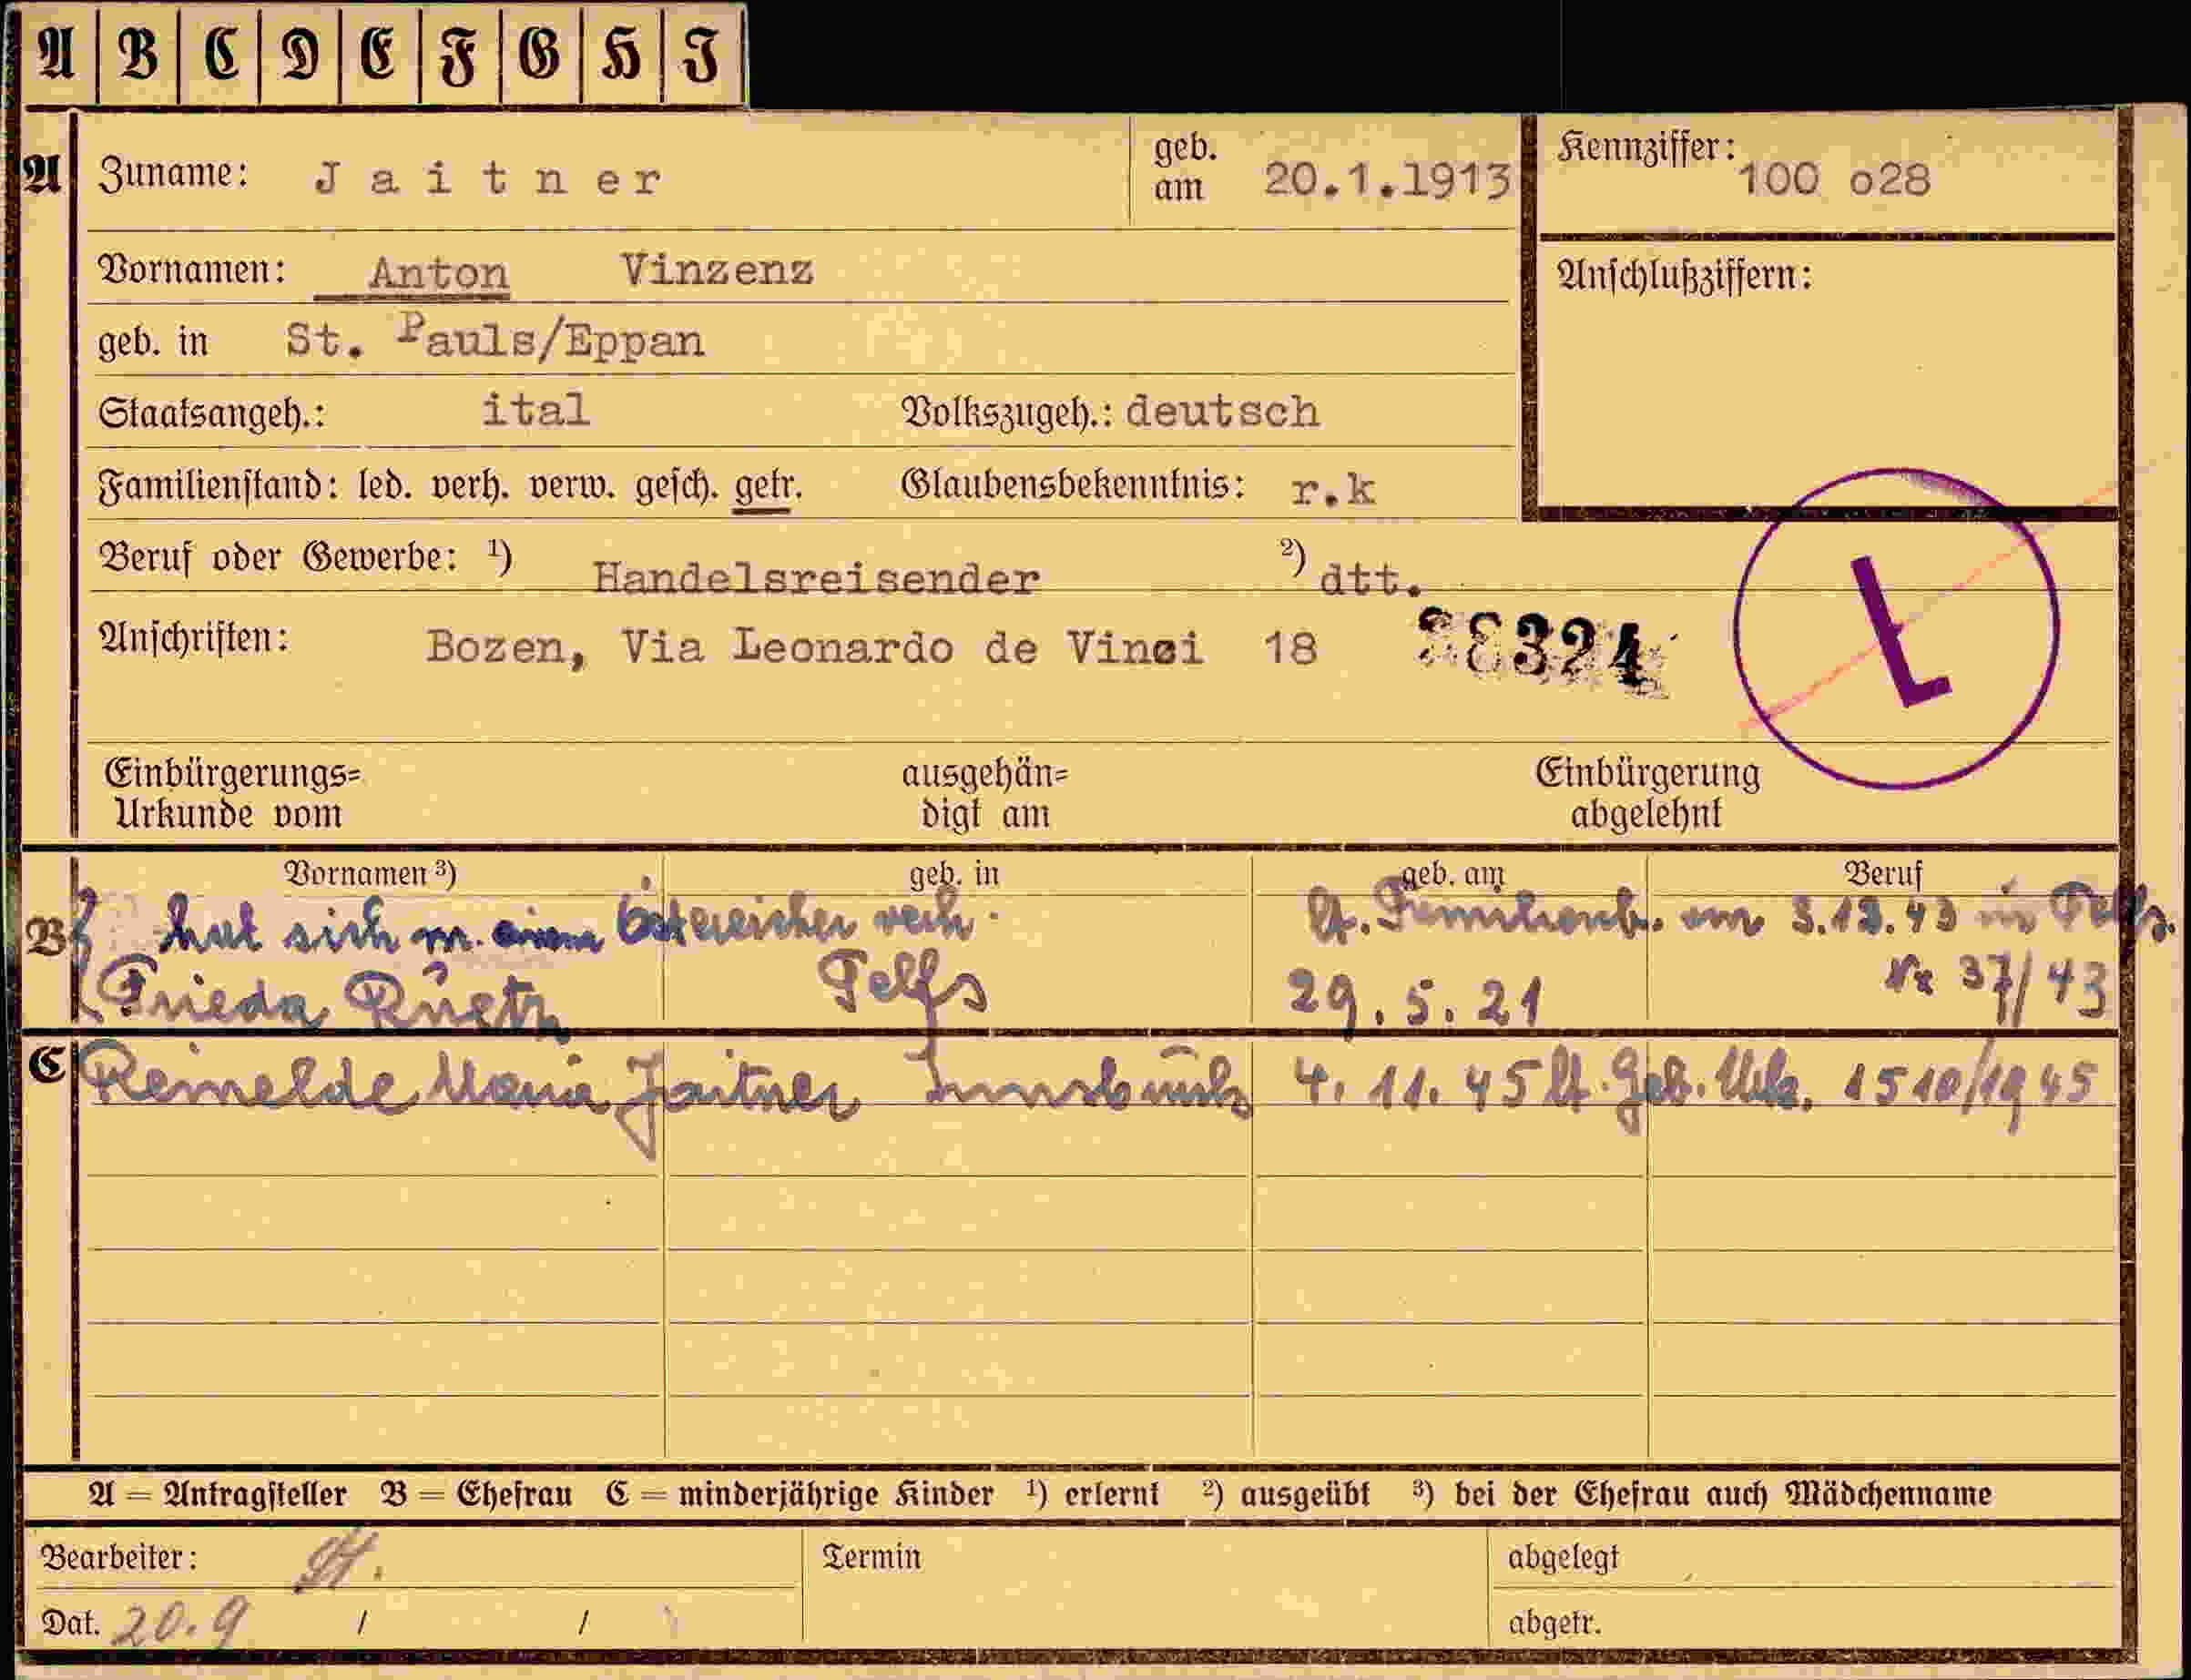 A B C D E F G H I
A Zuname: Jaitner geb. am 20.1.1913 Kennziffer: 100 o28
Vornamen: Anton Vinzenz Anschlußziffern:
geb. in St. Pauls/Eppan
Staatsangeh.: ital Volkszugeh.: deutsch
Familienstand: led. verh. verw. gesch. getr. Glaubensbekenntnis: r.k
Beruf oder Gewerbe: ¹) Handelsreisender ²) dtt.
Anschriften: Bozen, Via Leonardo de Vinci 18 38324 L
Einbürgerungs= ausgehän= Einbürgerung
Urkunde vom digt am abgelehnt
Vornamen ³) geb. in geb. am Beruf
B hat sich m. einem Östereicher verh. lt. in Telfs.
Frieda Rüetz Telfs 29.5.21 Nr 37/43
C Reinelde Maria Jaitner Innsbruck 4.11.45 lt. Geb. Urk. 1510/1945
A = Antragsteller B = Ehefrau C = minderjährige Kinder ¹) erlernt ²) ausgeübt ³) bei der Ehefrau auch Mädchenname
Bearbeiter: Termin abgelegt
Dat. 20.9 / / abgetr.